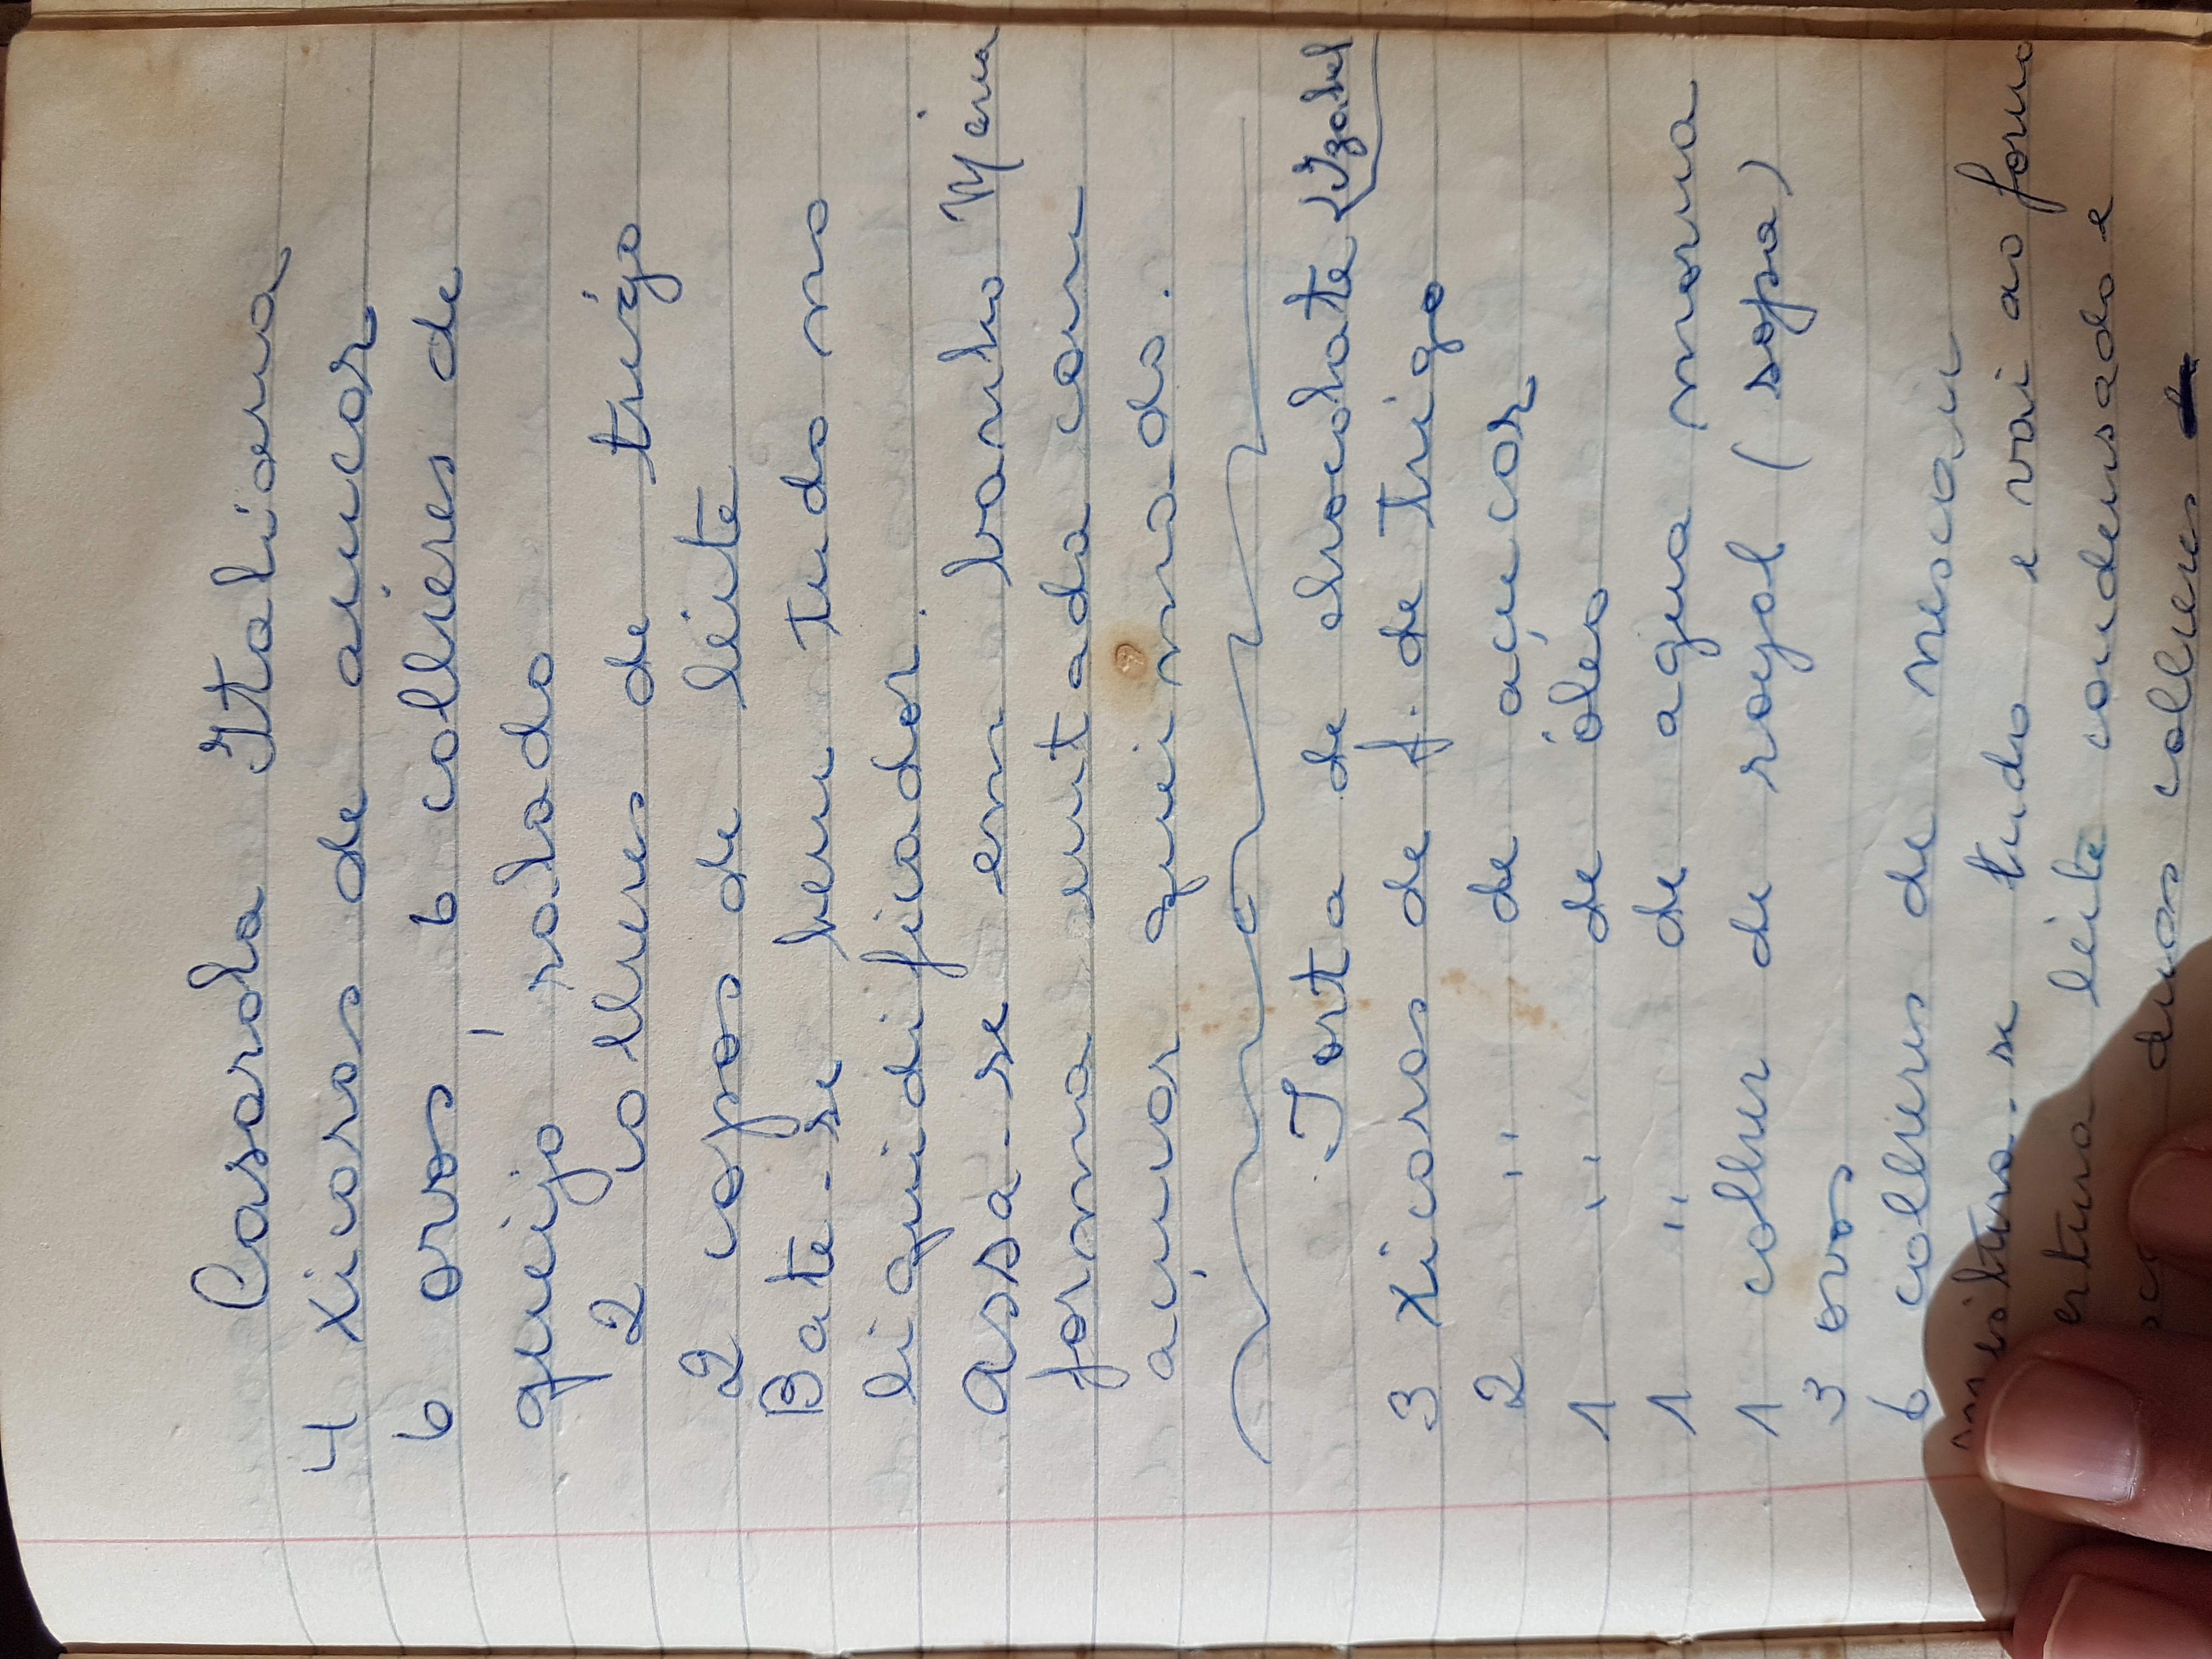 Casarola Italiana
4 xicaras de açucar
6 ovos, 6 colheres de
queijo ralado
2 colheres de trigo
2 copos de leite
Bate-se bem tudo no
liquidificador.
Assa-se em banho Maria
forma untada com
açucar queimado.
Torta de chocolate (Izabel
3 xicaras de f. de trigo
2 " de açucar
1 " de óleo
1 " de agua morna
1 colher de royal (sopa)
3 ovos
6 colheres de nescau
Mistura-se tudo e vai ao forno
ertura leite condensado e
duas colheres